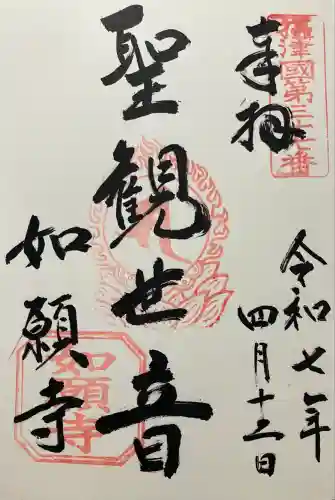 奉拝
摂津國第三十七番
令和七年
四月十三日
聖観世音
如願寺
如願寺